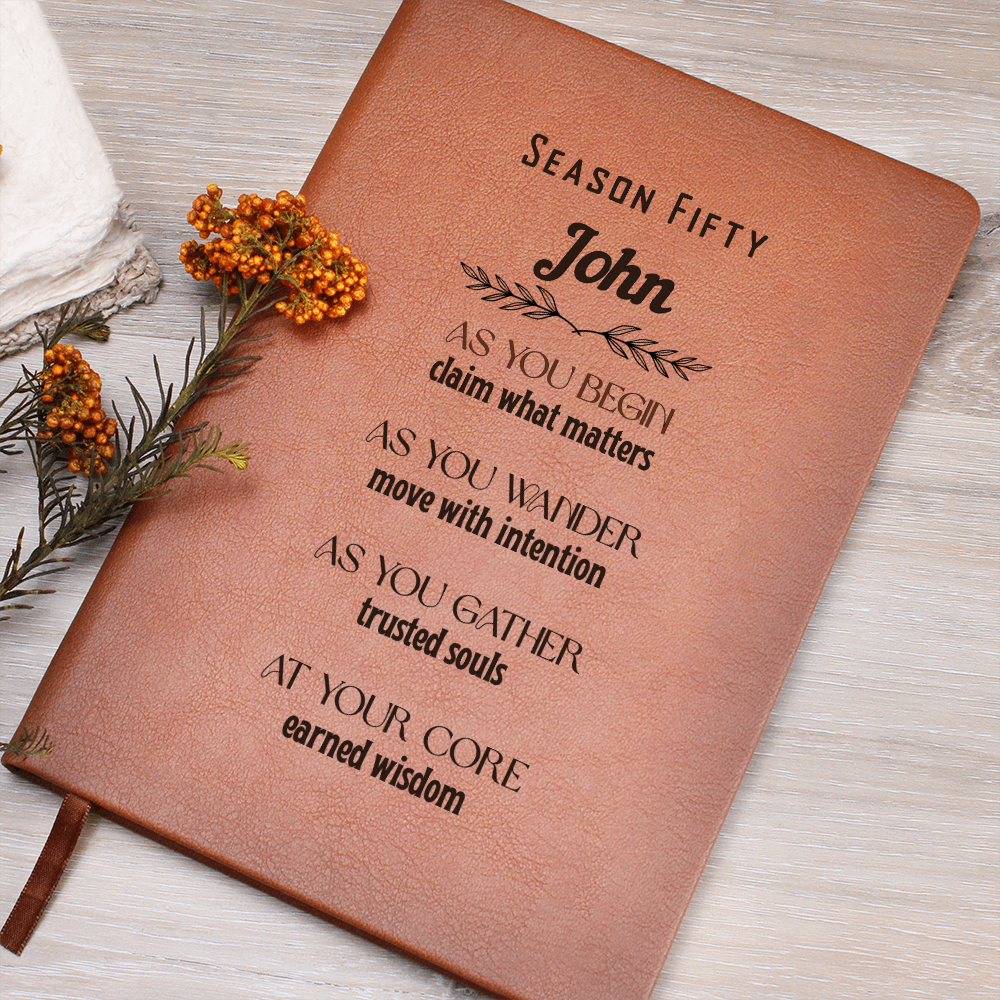 Season Fifty
John
AS YOU BEGIN
claim what matters
AS YOU WANDER
move with intention
AS YOU GATHER
trusted souls
AT YOUR CORE
earned wisdom